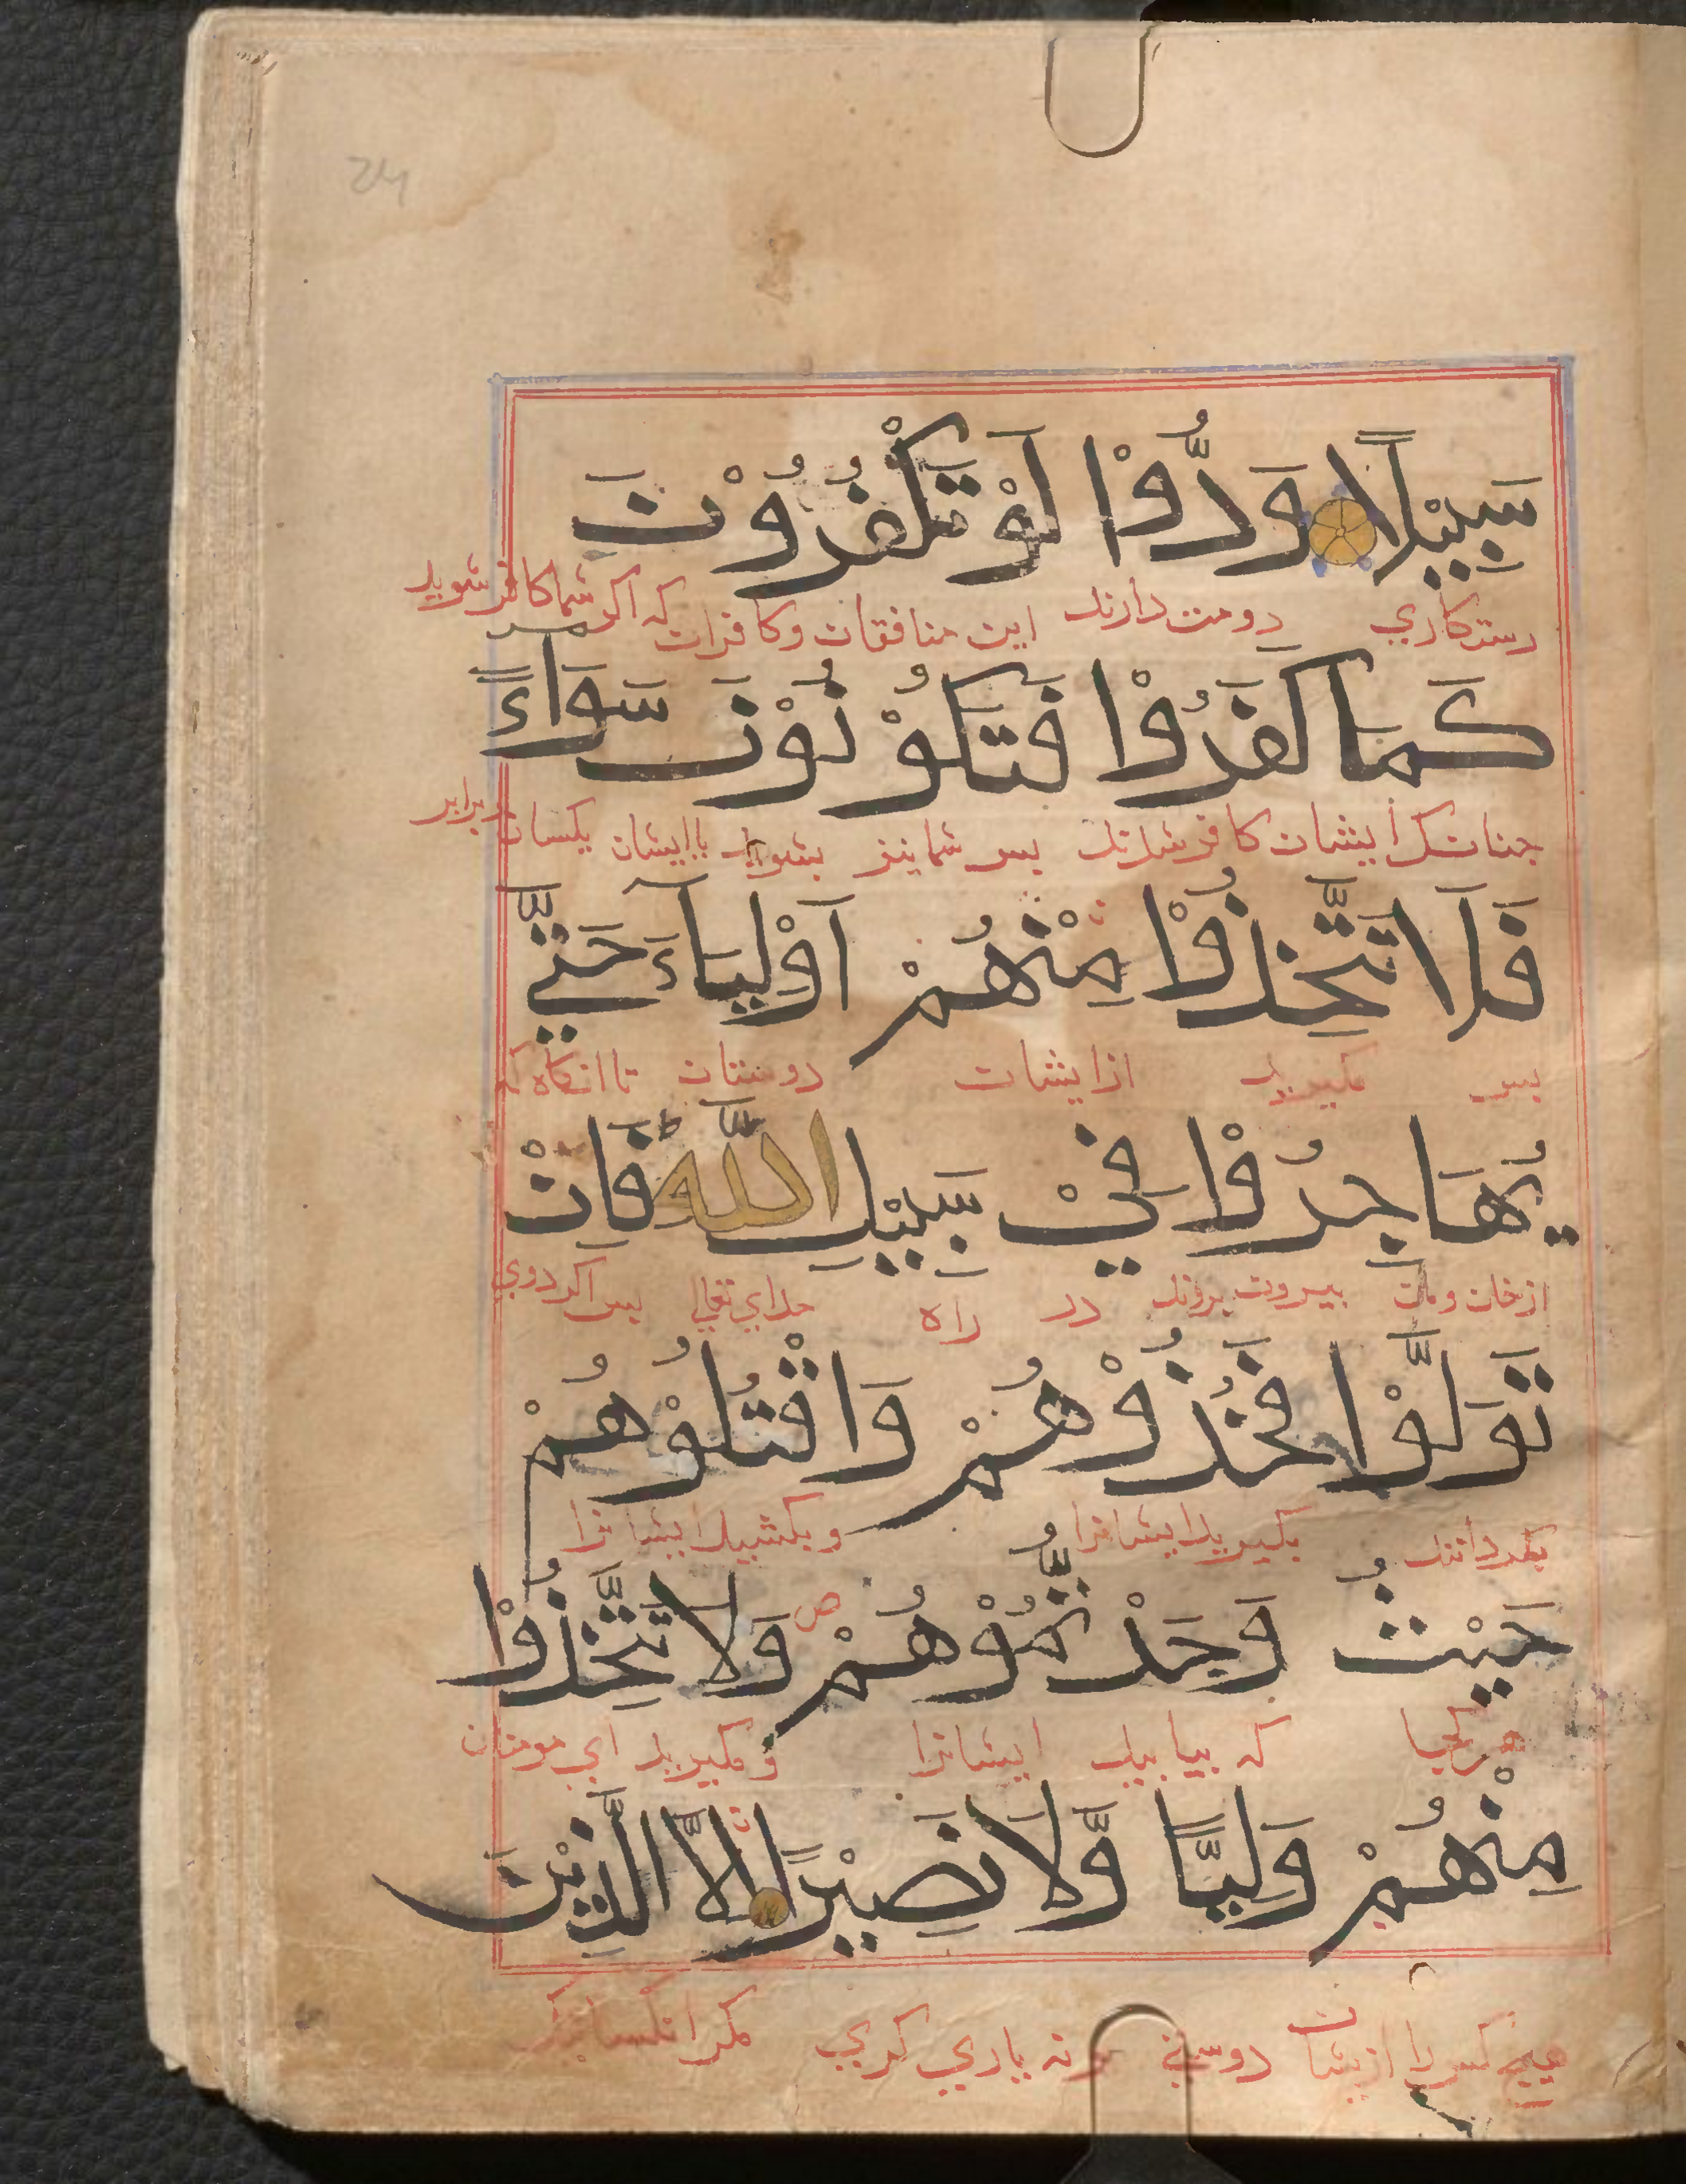 سَبِيْلًا وَدُّوْا لَوْ تَكْفُرُوْنَ
رستكاري دوست دارند اين منافقان وكافران كه اكر شما كافر شويد
كَمَا كَفَرُوْا فَتَكُوْنُوْنَ سَوَاءً
جنانك ايشان كافر شدند بس شما نيز بشويد با ايشان يكسان برابر
فَلَا تَتَّخِذُوْا مِنْهُمْ اَوْلِيَآءَ حَتّٰي
بس مكيريد از ايشان دوستان تا انكاه كه
يُهَاجِرُوْا فِيْ سَبِيْلِ اللّٰهِ ط فَاِنْ
از خان ومان بيرون روند در راه خداي تعالي بس اكر روي
تَوَلَّوْا فَخُذُوْهُمْ وَاقْتُلُوْهُمْ
بكردانند بكيريد ايشانرا وبكشيد ايشانرا
حَيْثُ وَجَدْتُّمُوْهُمْ ص وَلَا تَتَّخِذُوْا
هر كجا كه بيابيد ايشانرا و مكيريد اي مومنان
مِنْهُمْ وَلِيًّا وَّلَا نَصِيْرًا اِلَّا الَّذِيْنَ
هيج كس را از ايشان دوستي و نه ياري كري مكر انكسانيكه